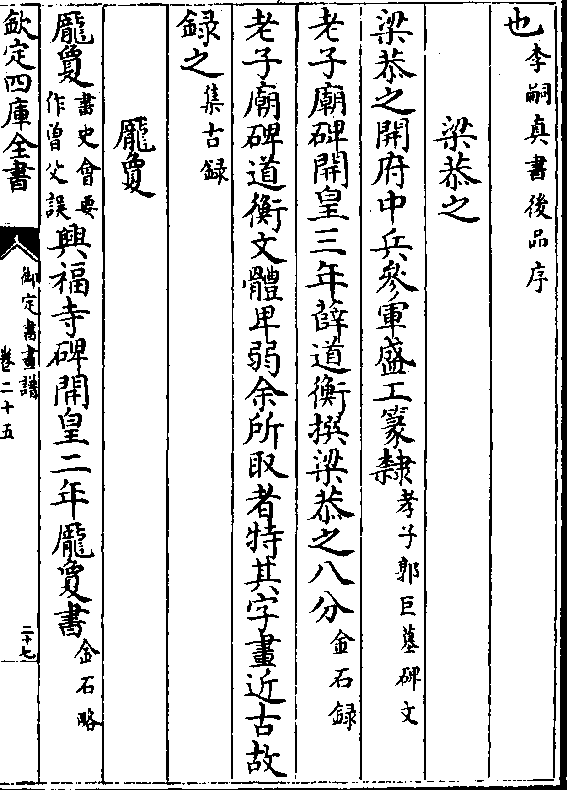 也李嗣真書後品序
梁恭之
梁恭之開府中兵參軍盛工篆隸孝子郭巨墓碑文
老子廟碑開皇三年薛道衡撰梁恭之八分金石録
老子廟碑道衡文體卑弱余所取者特其字畫近古故
録之集古録
龎夐
龎夐書史會要作曽父誤興福寺碑開皇二年龎夐書金石略
欽定四庫全書
御定書畫譜
卷二十五
二十七